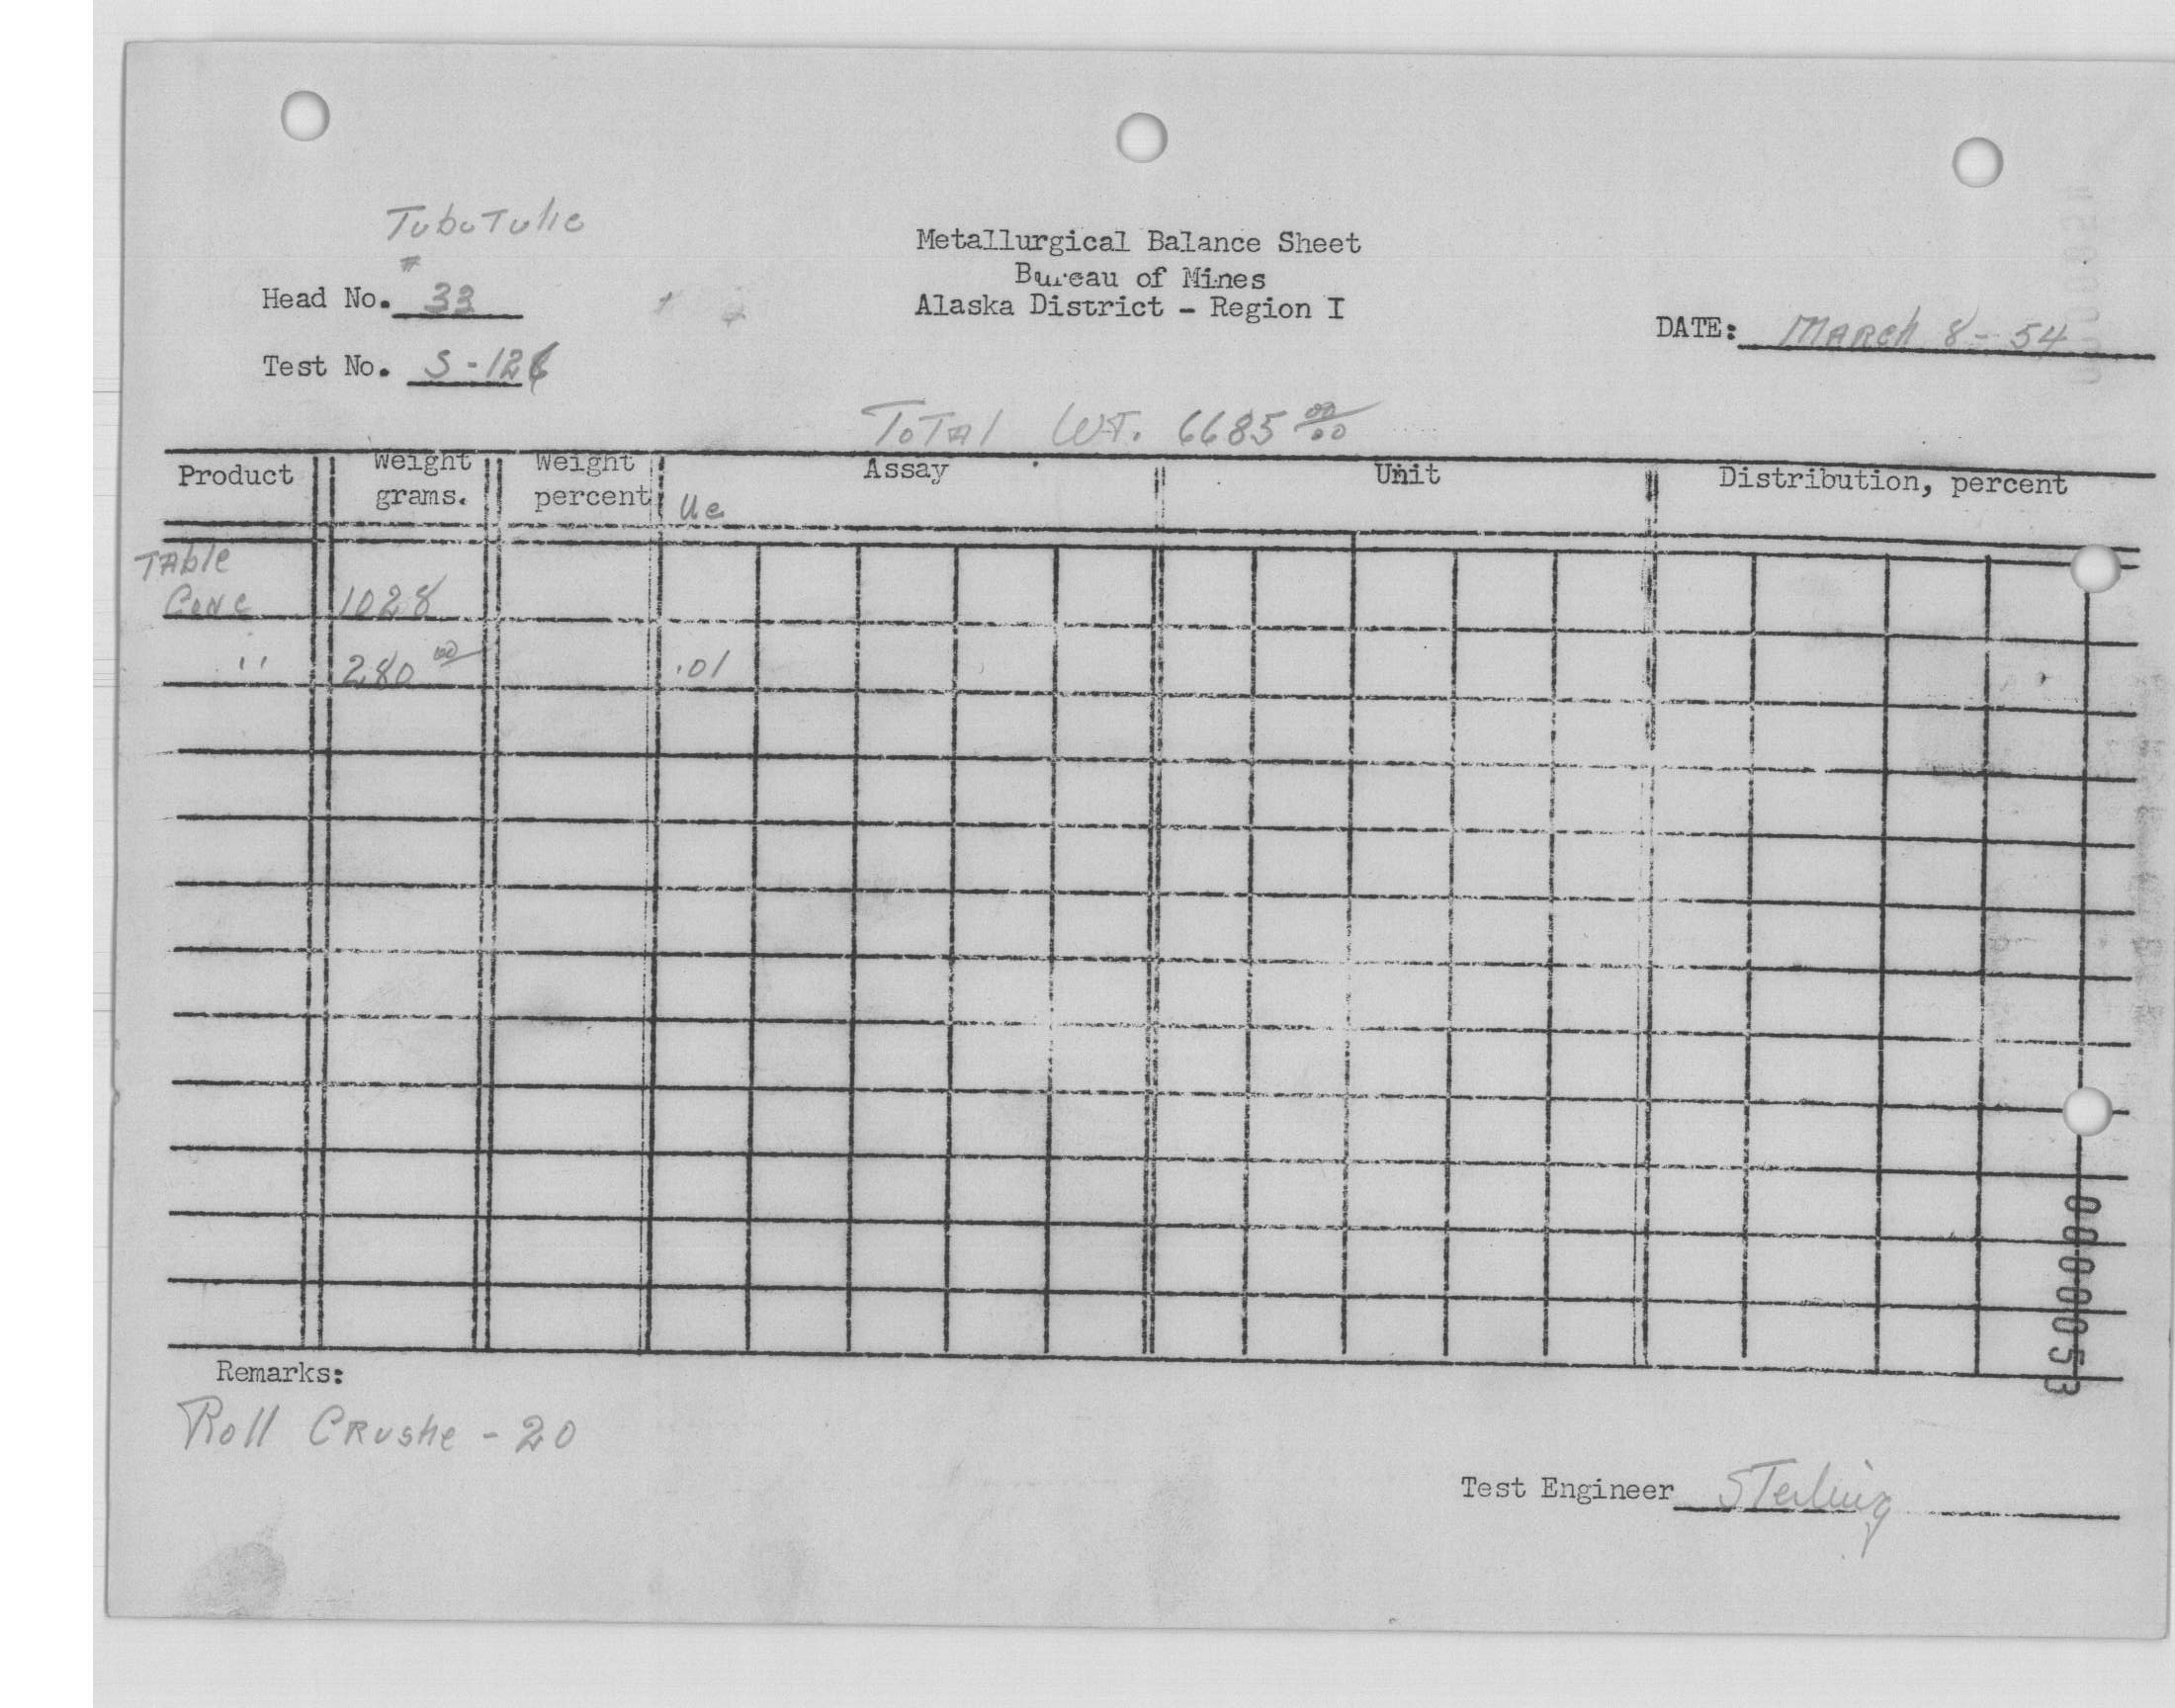 TubuTulie
Metallurgical Balance Sheet
Bureau of Mines
Alaska District - Region I
#
Head No. 33
DATE: MARCH 8 - 54
Test No. S-126
TOTAl WT. 6685 00/00
Product Weight grams. Weight percent Assay Unit Distribution, percent
Ue
TAble
CONC 1028
" 280 00 .01
Remarks:
Roll CRushe - 20
Test Engineer Sterling
00000053